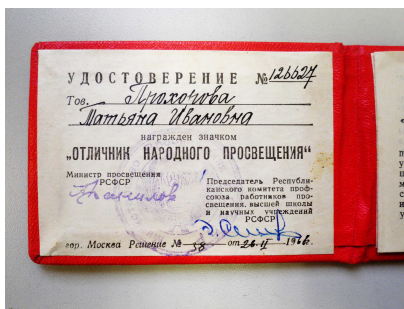 УДОСТОВЕРЕНИЕ № 126627
Тов. Прохорова
Татьяна Ивановна
награжден значком
„ОТЛИЧНИК НАРОДНОГО ПРОСВЕЩЕНИЯ“
Министр просвещения
РСФСР
Председатель Республи-
канского комитета проф-
союза работников про-
свещения, высшей школы
и научных учреждений
РСФСР
гор. Москва Решение № 38 от 26.II 1966г.